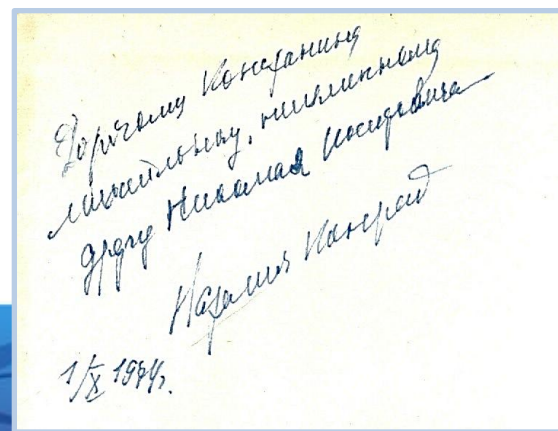 Дорогому Константину
Михайловичу,
другу Николая Иосифовича
Наталия Конрад
1/X 1974г.